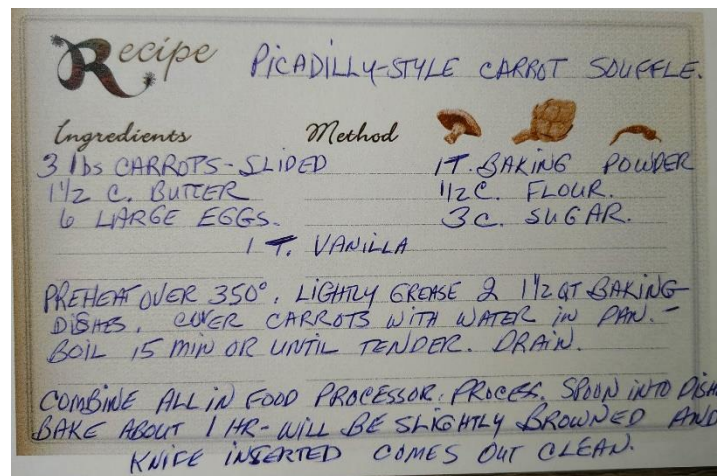 Recipe PICADILLY-STYLE CARROT SOUFFLE.
Ingredients Method
3 lbs CARROTS - SLIDED 1 T. BAKING POWDER
1 1/2 C. BUTTER 1/2 C. FLOUR.
6 LARGE EGGS. 3 C. SUGAR.
1 T. VANILLA
PREHEAT OVER 350°. LIGHTLY GREASE 2 1 1/2 QT BAKING
DISHES. COVER CARROTS WITH WATER IN PAN. -
BOIL 15 MIN OR UNTIL TENDER. DRAIN.
COMBINE ALL IN FOOD PROCESSOR. PROCES. SPOON INTO DISH
BAKE ABOUT 1 HR - WILL BE SLIGHTLY BROWNED AND
KNIFE INSERTED COMES OUT CLEAN.